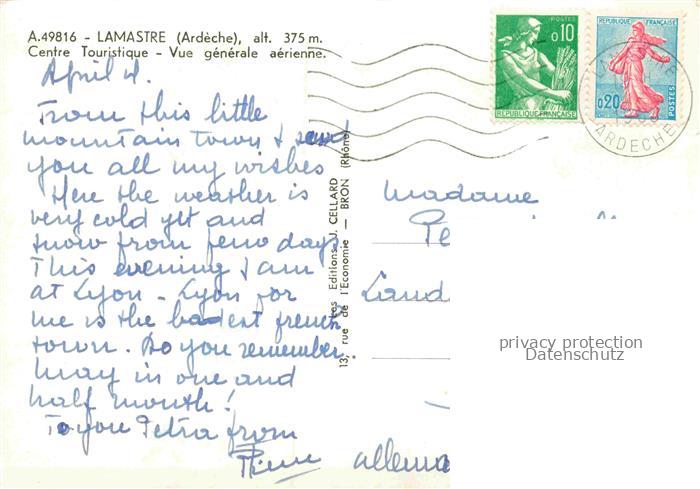 A.49816 - LAMASTRE (Ardèche), alt. 375 m.
Centre Touristique - Vue générale aérienne.
April 4.
From this little
mountain town I send
you all my wishes
Here the weather is
very cold yet and
snow from few days.
This evening I am
at Lyon - Lyon for
me is the badest french
town. Do you remember
May in one and
half month!
To you Petra from
Pierre
Les Editions J. CELLARD
13, rue de l'Economie — BRON (Rhône)
POSTES
0,10
REPUBLIQUE FRANÇAISE
REPUBLIQUE FRANÇAISE
0,20
POSTES
ARDECHE
Madame
Pe
Land
allema
privacy protection
Datenschutz